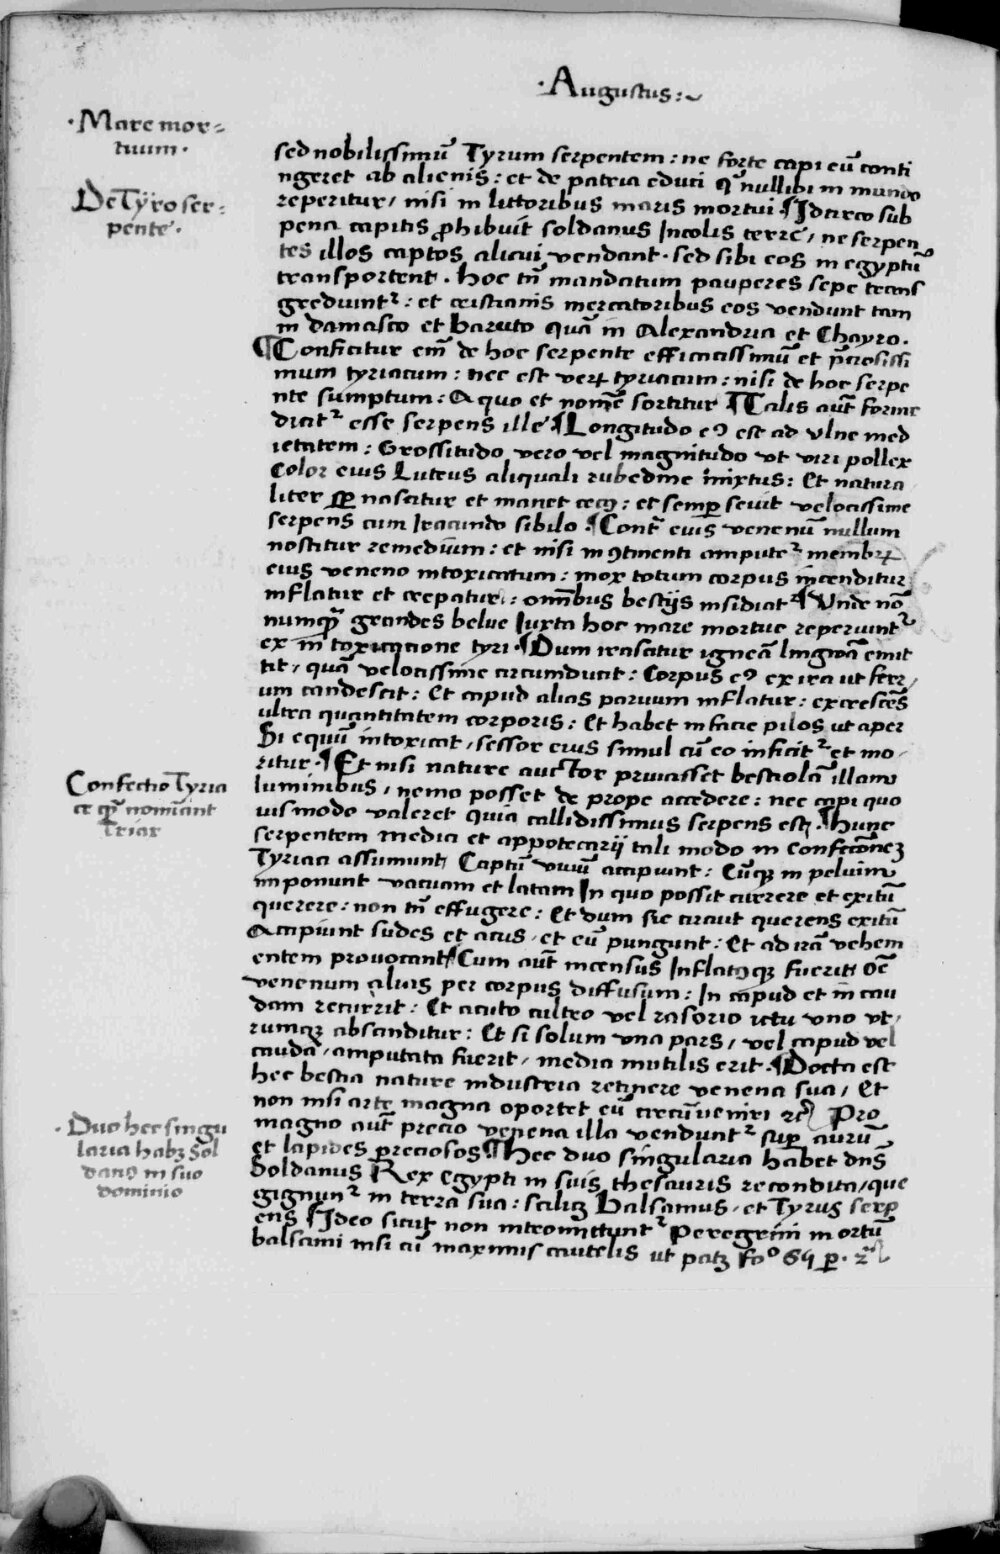 ·Augustus:~
·Mare mor=
tuum·
De Tÿro ser=
pente·
sed nobilissimū Tyrum serpentem: ne forte capi eū conti
ngeret ab alienis: et de patria educi qͣ nullibi in mundo
reperitur / nisi in littoribus maris mortui ¶ Idcirco sub
pena capitis ꝓhibuit soldanus Incolis terre / ne serpen
tes illos captos alicui vendant · sed sibi eos in egyptū
transportent · hoc tñ mandatum pauperes sepe trans
grediuntᷣ: et cristianis mercatoribus eos vendunt tam
in damasco et baruto quā in Alexandria et Chayro.
¶ Conficitur em̄ de hoc serpente efficacissimū et p̄ciosissi
mum tyriacum: nec est verꝫ tyriacum: nisi de hoc serpe
nte sumptum: A quo et nomē sortitur ¶ Talis aut̄ forme
dicitᷣ esse serpens ille ¶ Longitudo eꝰ est ad vlne med
ietatem: Grossitudo vero vel magnitudo vt viri pollex
Color eius Luteus aliquali rubedine mixtus: Et natura
liter semꝑ nascitur et manet cecꝰ: et semꝑ sevit velocissime
serpens cum Iracundo sibilo ¶ Contᷓ eius venenū nullum
noscitur remedium: et nisi in ꝯtinenti amputetᷣ membrꝫ
eius veneno intoxicatum: mox totum corpus incenditur
inflatur et crepatur: omībus bestijs insidiatᷣ ¶ Vnde nō
numqͣ grandes belue Iuxta hoc mare mortue reperiuntᷣ
ex intoxicatione tyri ¶ Dum irascitur igneā lingwā emit
tit / quā velocissime circumducit: Corpus eꝰ ex ira ut ferr/
um candescit: Et capud alias paruum inflatur: excrescēs
ultra quantitatem corporis: Et habet in facie pilos ut aper
Si equū intoxicat / sessor eius simul cū eo inficitᷣ et mo/
ritur · ¶ Et nisi nature auctor priuasset bestiolā illam
luminibus / nemo posset de prope accedere: nec capi quo
uismodo valeret quia callidissimus serpens est · ¶ Hunc
Confectio Tyria
ce qͣ nomināt
Triax
serpentem medici et appotecarij tali modo in confectionē
Tyriaci assumunt Captū vivū accipiunt: Cūqꝫ in peluim
imponunt vacuam et latam In quo possit currere et exitū
querere: non tñ effugere: Et dum sic circuit querens exitū
Accipiunt sudes et acus / et eū pungunt: Et ad irā vehem
entem prouocant ¶ Cum aut̄ incensus Inflatusqꝫ fuerit oē
venenum alias per corpus diffusum: In capud et in cau
dam recurrit: Et acuto cultro vel rasorio ictu vno vt/
rumqꝫ abscinditur: Et si solum vna pars / vel capud vel
cauda / amputata fuerit / media inutilis erit · ¶ Docta est
hec bestia nature industria retinere venena sua / Et
non nisi arte magna oportet eū circūveniri ⁊c̄ Pro
magno aut̄ precio venena illa vendūtᷣ sup̱ aurū
·Duo hec singu
laria habꝫ Sol
danꝰ in suo
dominio
et lapides preciosos ¶ Hec duo singularia habet dn̄s
Soldanus Rex Egypti in suis thesauris recondita / que
gignuntᷣ in terra sua: scilicꝫ Balsamus / et Tyrus serp
ens ¶ Ideo sicut non intromittuntᷣ Peregrini in ortū
balsami nisi cū maximis cautelis ut patꝫ